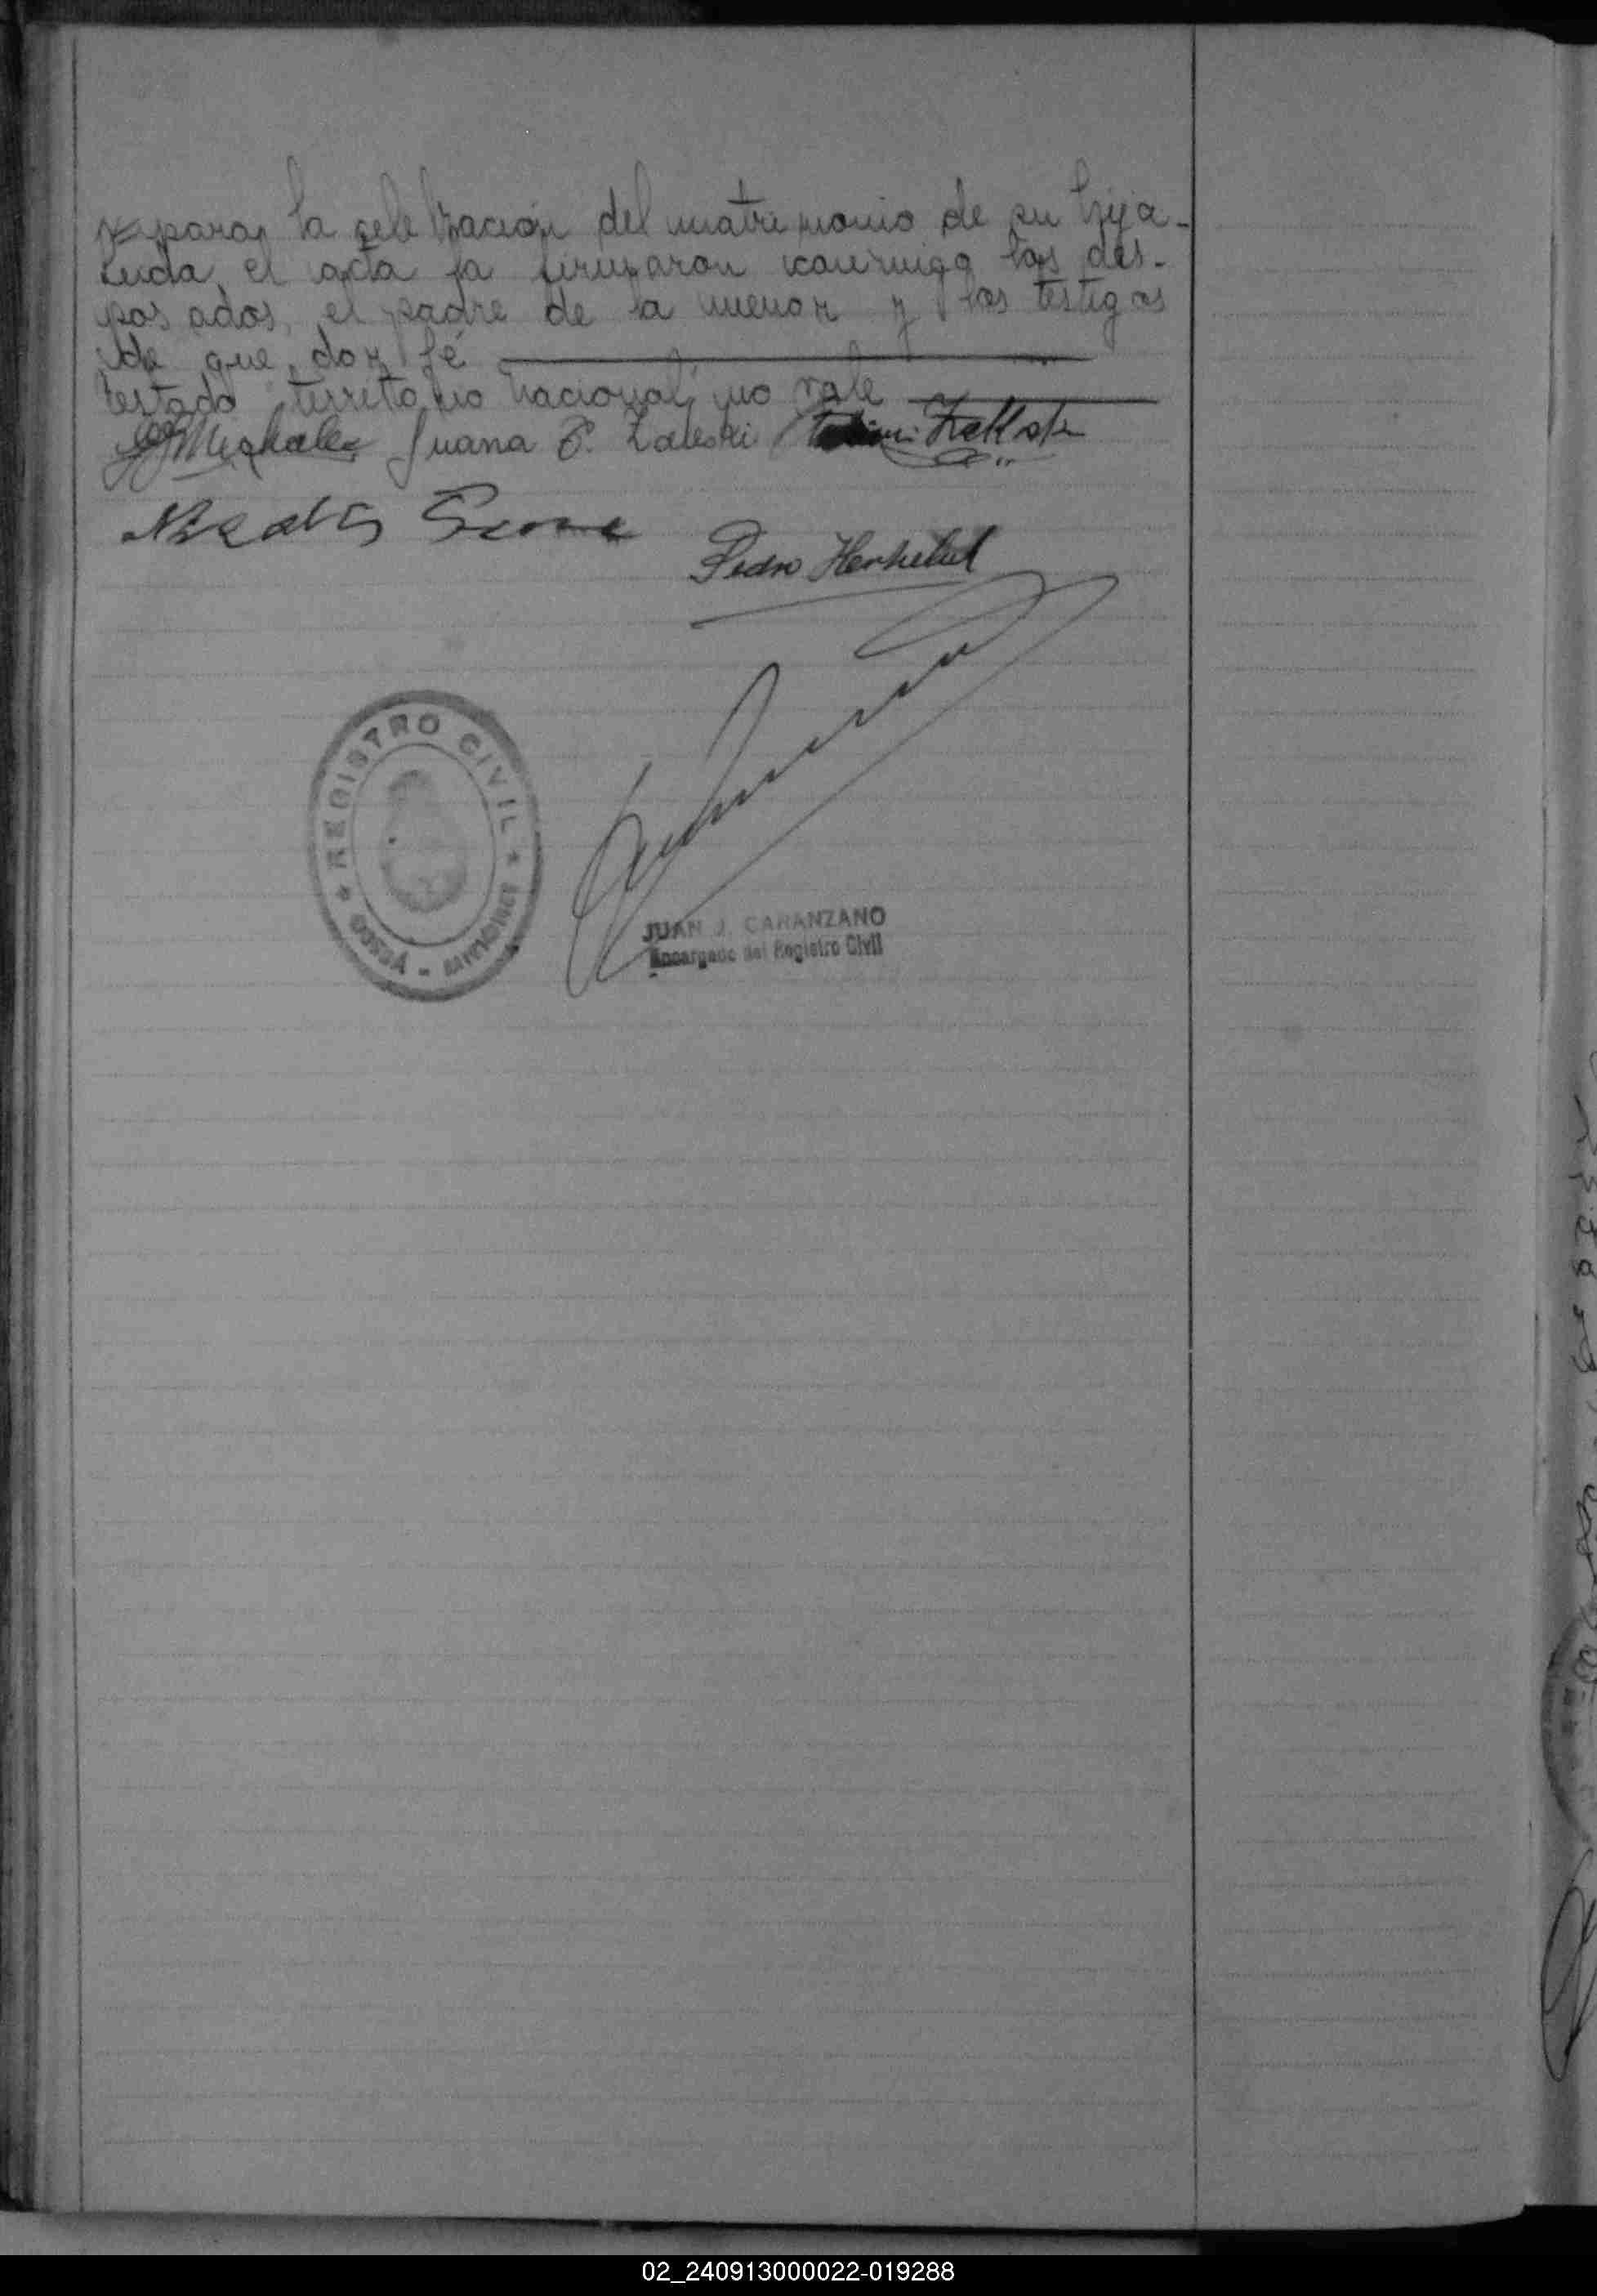 para la celebración del matrimonio de su hija-
Leida el acta la firmaron conmigo los des-
posados, el padre de la menor y los testigos
de que doy fé
testado "territorio nacional" no vale
Juana E. Zaleski
Pedro
REGISTRO CIVIL
MISIONES
JUAN J. CARANZANO
Encargado del Registro Civil
02_240913000022-019288